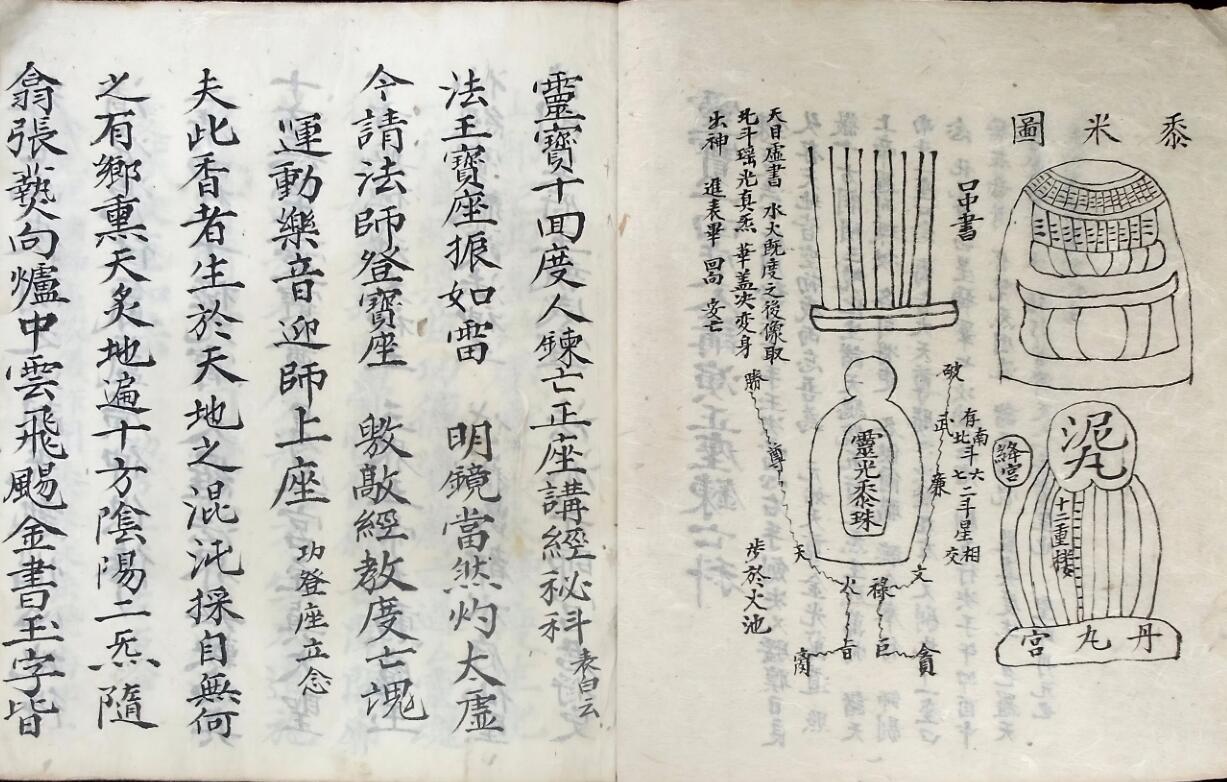 黍米圖
口中書
天目虛書　水火既度之後像取
北斗瑶光真炁　華盖决变身
出神　進表畢　回　安亡
泥丸
絳宮
十二重楼
丹九宮
靈光黍珠
破
武
廉
文
祿
巨
貪
存南
北斗六
七二斗星相
交
勝
尊
天
火
步於火池
靈寶十回度人鍊亡正座講經秘科　表白云
法王寶座振如雷　明鏡當然灼太虛
今請法師登寶座　敷敭經教度亡魂
運動樂音迎師上座　功登座立念
夫此香者生於天地之混沌採自無何
之有鄉熏天炙地遍十方陰陽二炁隨
翕張爇向爐中雲飛颺金書玉字皆